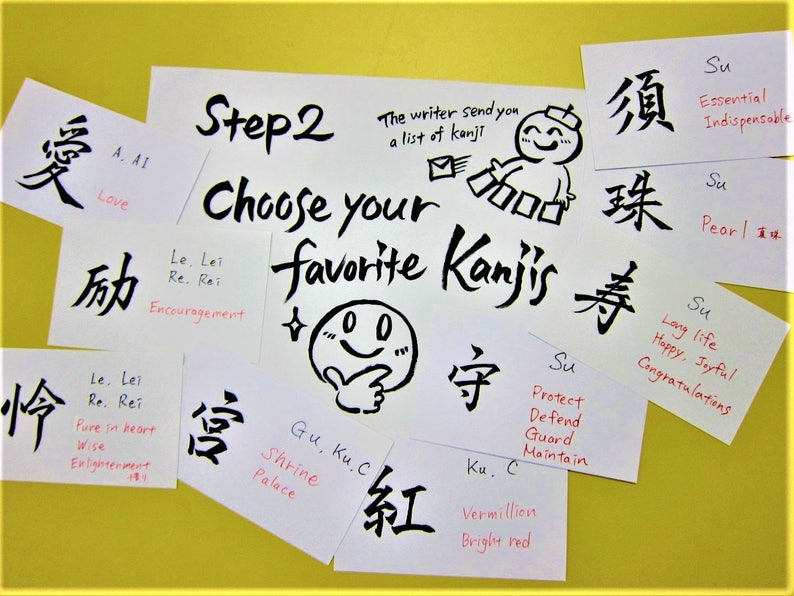 Step2
The writer send you
a list of kanji
Choose your
favorite Kanjis
愛
A. AI
Love
励
Le. Lei
Re. Rei
Encouragement
怜
Le. Lei
Re. Rei
Pure in heart
Wise
Enlightenment
宮
Gu, Ku. C
Shrine
Palace
紅
Ku. C
Vermillion
Bright red
守
Su
Protect
Defend
Guard
Maintain
寿
Su
Long life
Happy, Joyful
Congratulations
珠
Su
Pearl 真珠
須
Su
Essential
Indispensable